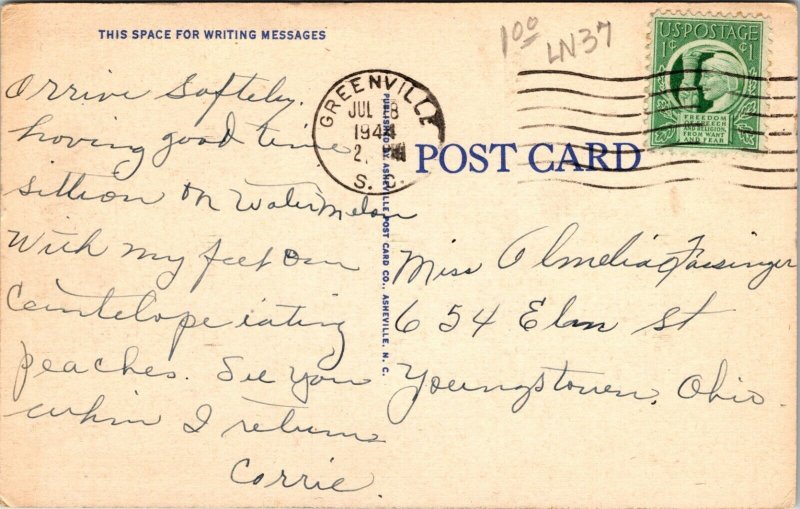 THIS SPACE FOR WRITING MESSAGES
1.00
LN37
U.S. POSTAGE
1¢ ¢1
FREEDOM
OF SPEECH
AND RELIGION,
FROM WANT
AND FEAR
GREENVILLE
JUL 8
1944
2
S. C.
POST CARD
PUBLISHED BY ASHEVILLE POST CARD CO., ASHEVILLE, N. C.
Arrive Saftely.
having good time
sittion on watermelon
With my feet on
Cantelope eating
peaches. See you
when I return
Corrie.
Miss Olmelia Fassinger
654 Elm St
Youngstown, Ohio.